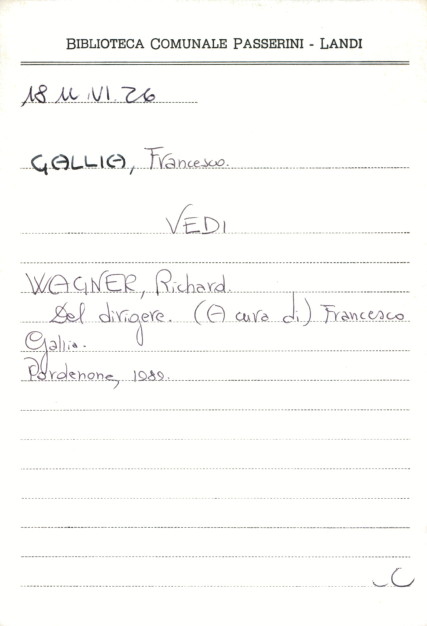 BIBLIOTECA COMUNALE PASSERINI - LANDI
18 M VI. 26
GALLIA, Francesco.
VEDI
WAGNER, Richard.
Del dirigere. (A cura di) Francesco
Gallia.
Pordenone, 1989.